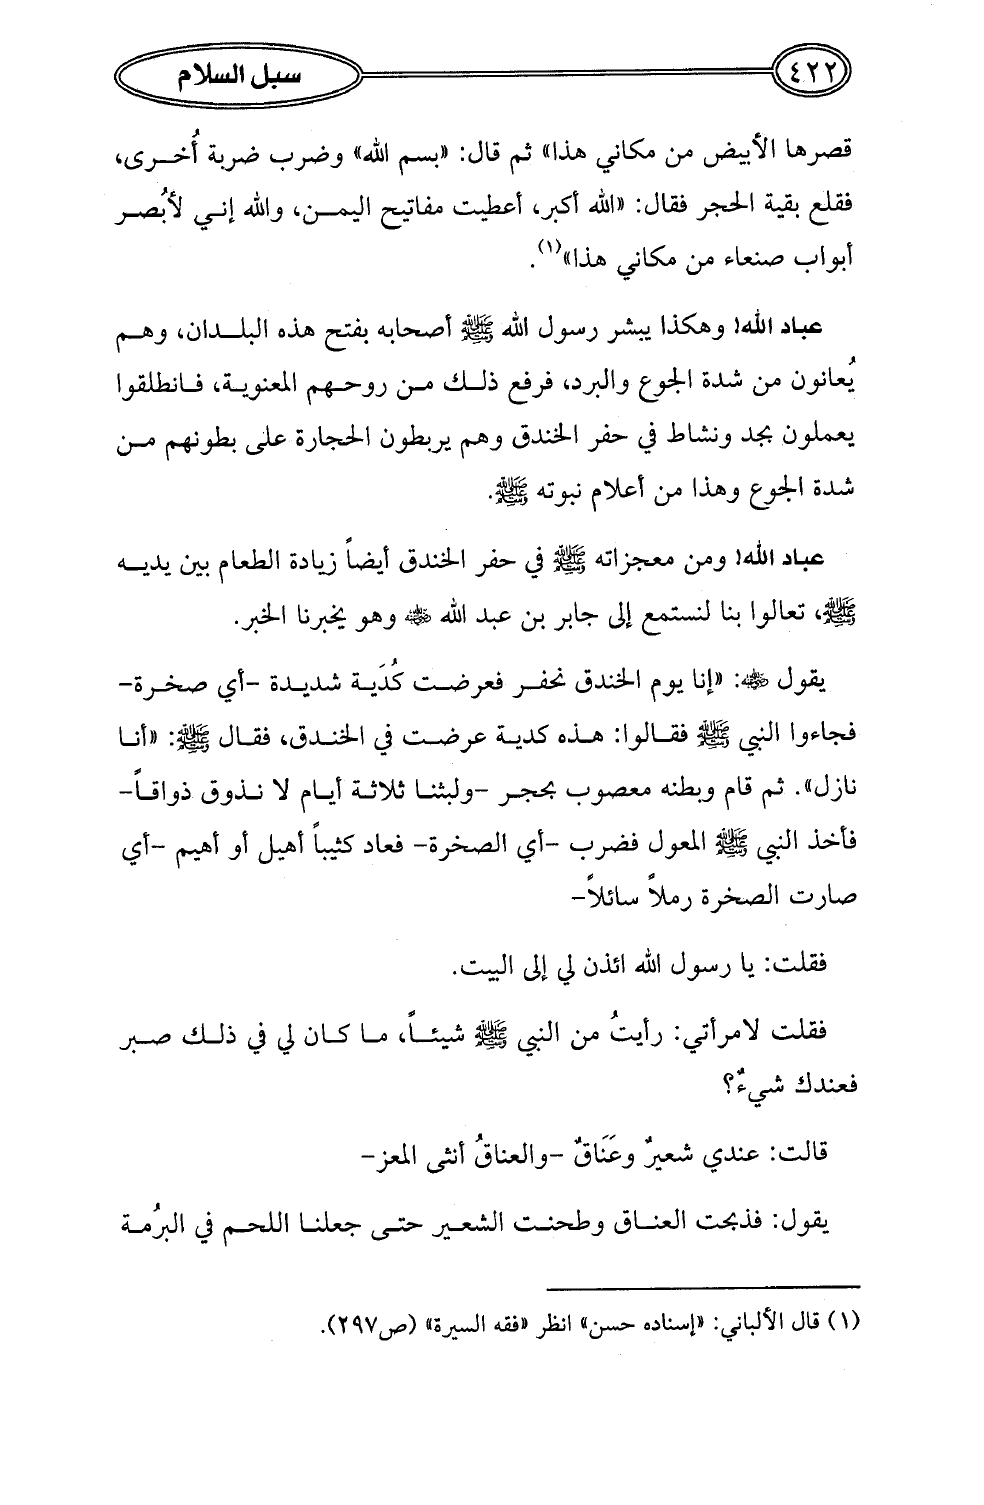 ٤٢٢
سبل السلام
قصرها الأبيض من مكاني هذا» ثم قال: «بسم الله» وضرب ضربة أُخرى،
فقلع بقية الحجر فقال: «الله أكبر، أعطيت مفاتيح اليمن، والله إني لأبُصر
أبواب صنعاء من مكاني هذا»(١).
عباد الله! وهكذا يبشر رسول الله ﷺ أصحابه بفتح هذه البلدان، وهم
يُعانون من شدة الجوع والبرد، فرفع ذلك من روحهم المعنوية، فانطلقوا
يعملون بجد ونشاط في حفر الخندق وهم يربطون الحجارة على بطونهم من
شدة الجوع وهذا من أعلام نبوته ﷺ.
عباد الله! ومن معجزاته ﷺ في حفر الخندق أيضاً زيادة الطعام بين يديه
ﷺ، تعالوا بنا لنستمع إلى جابر بن عبد الله رضي الله عنه وهو يخبرنا الخبر.
يقول رضي الله عنه: «إنا يوم الخندق نحفر فعرضت كُدَية شديدة -أي صخرة-
فجاءوا النبي ﷺ فقالوا: هذه كدية عرضت في الخندق، فقال ﷺ: «أنا
نازل». ثم قام وبطنه معصوب بحجر -ولبثنا ثلاثة أيام لا نذوق ذواقاً-
فأخذ النبي ﷺ المعول فضرب -أي الصخرة- فعاد كثيباً أهيل أو أهيم -أي
صارت الصخرة رملاً سائلاً-
فقلت: يا رسول الله ائذن لي إلى البيت.
فقلت لامرأتي: رأيتُ من النبي ﷺ شيئاً، ما كان لي في ذلك صبر
فعندك شيءٌ؟
قالت: عندي شعيرٌ وعَنَاقٌ -والعناقُ أنثى المعز-
يقول: فذبحت العناق وطحنت الشعير حتى جعلنا اللحم في البرُمة
(١) قال الألباني: «إسناده حسن» انظر «فقه السيرة» (ص٢٩٧).